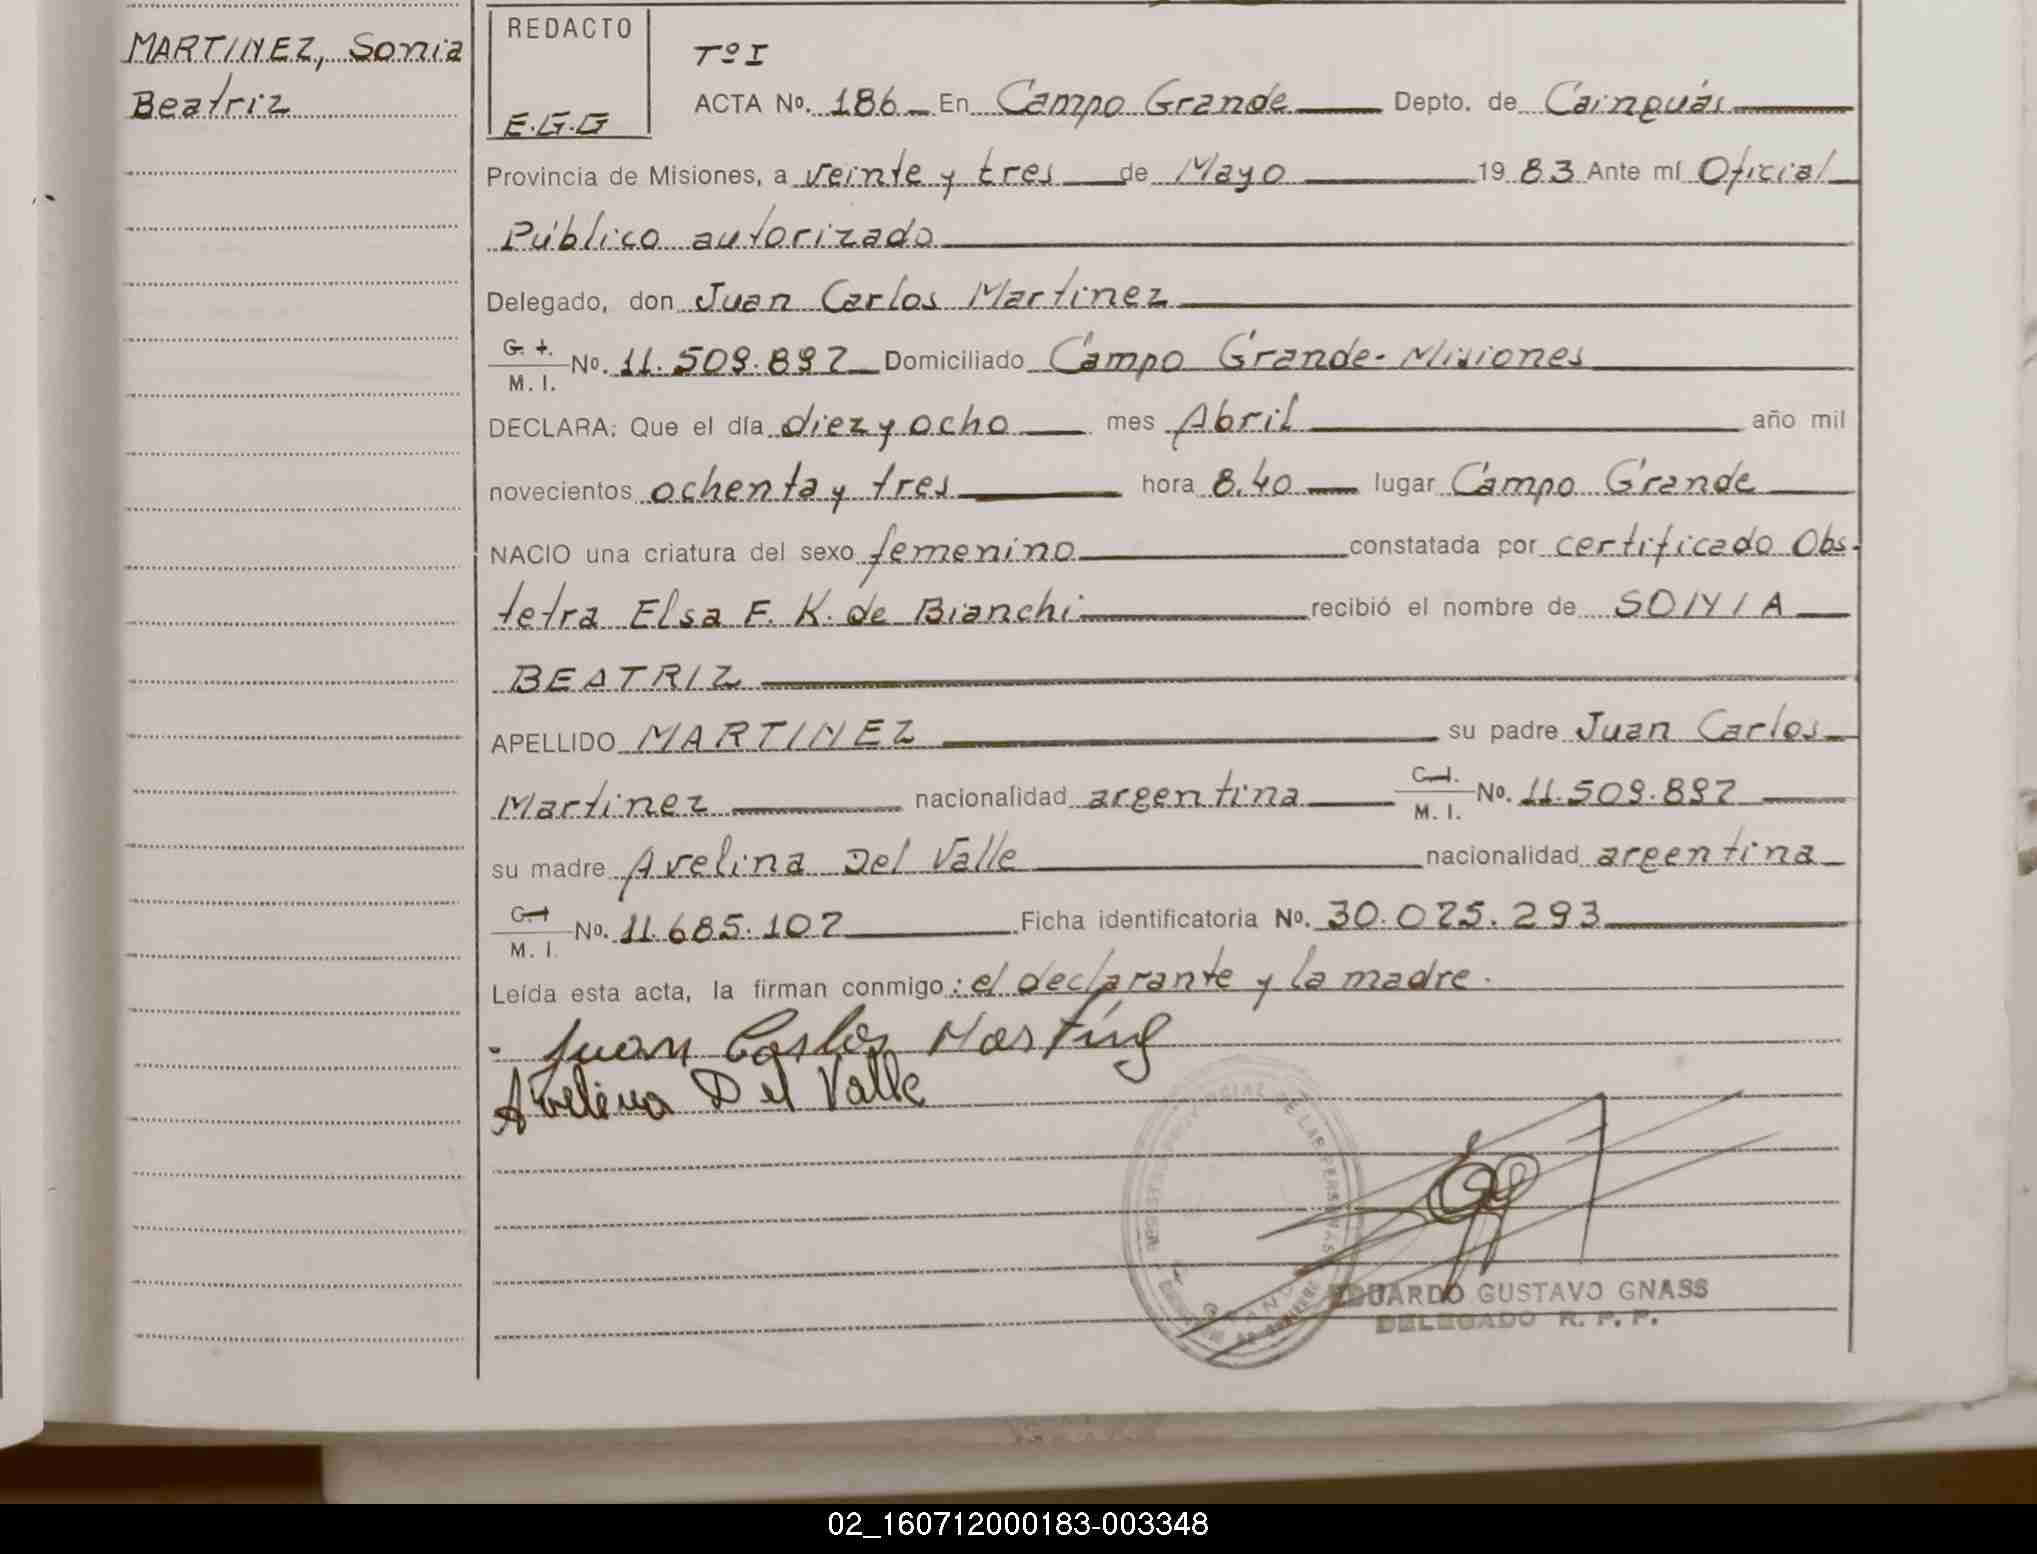 MARTINEZ, Sonia
Beatriz
REDACTO
E.G.G
Tº I
ACTA Nº. 186 En Campo Grande Depto. de Cainguás
Provincia de Misiones, a veinte y tres de Mayo 19 83 Ante mí Oficial
Público autorizado
Delegado, don Juan Carlos Martinez
C. I. M. I. Nº. 11.509.897 Domiciliado Campo Grande - Misiones
DECLARA: Que el día diez y ocho mes Abril año mil
novecientos ochenta y tres hora 8.40 lugar Campo Grande
NACIO una criatura del sexo femenino constatada por certificado Obs-
tetra Elsa F. K. de Bianchi recibió el nombre de SONIA
BEATRIZ
APELLIDO MARTINEZ su padre Juan Carlos
Martinez nacionalidad argentina C. I. M. I. Nº. 11.509.897
su madre Avelina Del Valle nacionalidad argentina
C. I. M. I. Nº. 11.685.107 Ficha identificatoria Nº. 30.075.293
Leída esta acta, la firman conmigo: el declarante y la madre.
Juan Carlos Martinez
Avelina Del Valle
EDUARDO GUSTAVO GNASS
DELEGADO R. P. P.
02_160712000183-003348